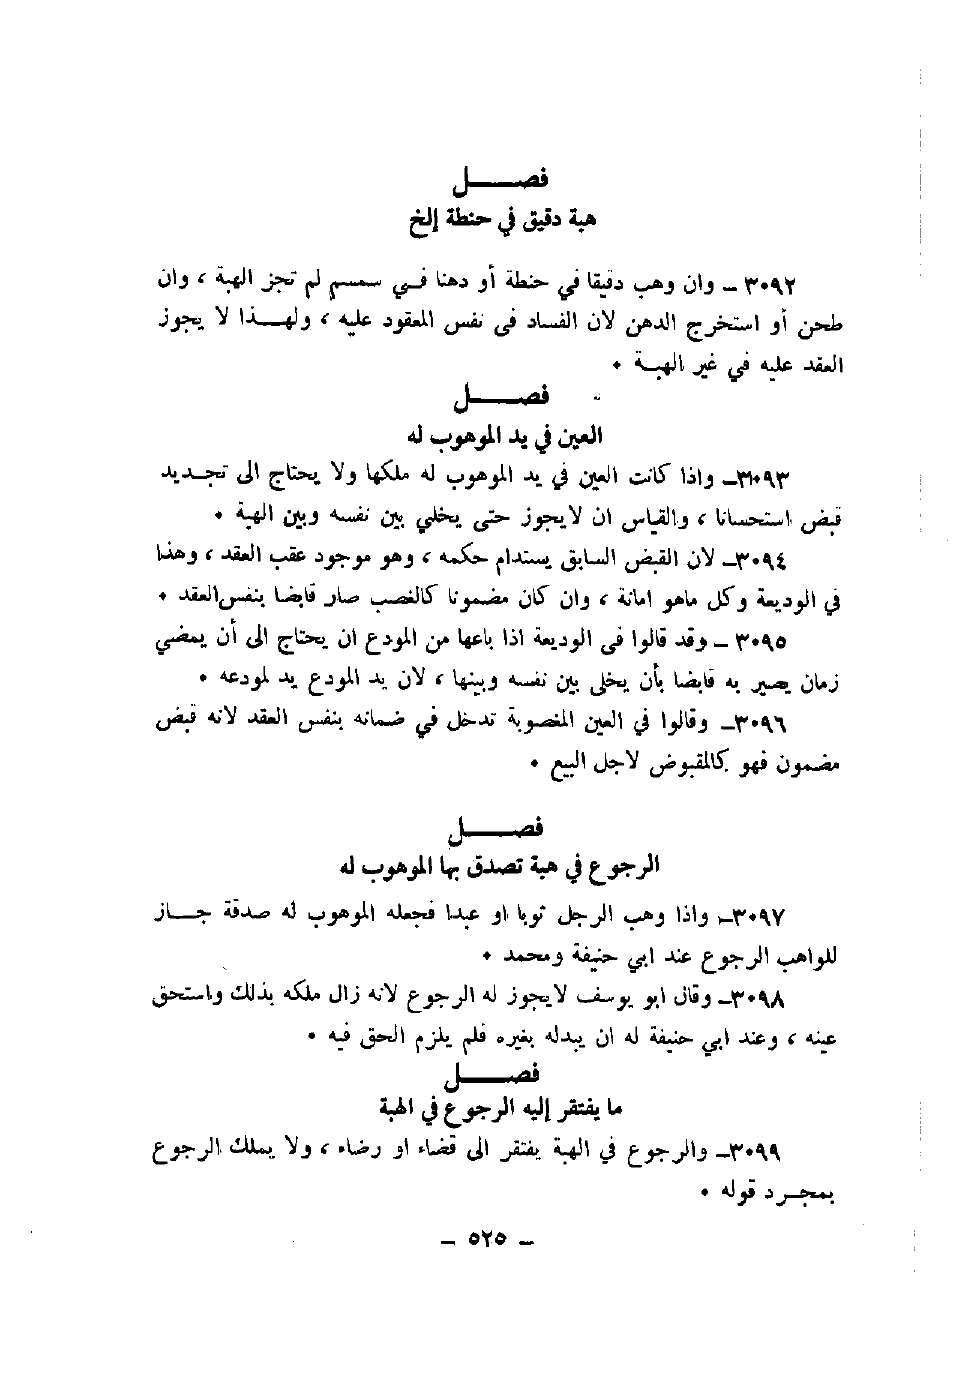 فصـــــل
هبة دقيق في حنطة إلخ
٣٠٩٢ – وان وهب دقيقا في حنطة أو دهنا فـي سمسم لم تجز الهبة ، وان
طحن أو استخرج الدهن لان الفساد فى نفس المعقود عليه ، ولهـــذا لا يجوز
العقد عليه في غير الهبـة ٠
فصـــــل
العين في يد الموهوب له
٣٠٩٣ـ واذا كانت العين في يد الموهوب له ملكها ولا يحتاج الى تجـديد
قبض استحسانا ، والقياس ان لايجوز حتى يخلي بين نفسه وبين الهبة ٠
٣٠٩٤ـ لان القبض السابق يستدام حكمه ، وهو موجود عقب العقد ، وهذا
في الوديعة وكل ماهو امانة ، وان كان مضمونا كالغصب صار قابضا بنفس العقد ٠
٣٠٩٥ – وقد قالوا فى الوديعة اذا باعها من المودع ان يحتاج الى أن يمضي
زمان يصير به قابضا بأن يخلى بين نفسه وبينها ، لان يد المودع يد لمودعه ٠
٣٠٩٦ـ وقالوا في العين المغصوبة تدخل في ضمانه بنفس العقد لانه قبض
مضمون فهو كالمقبوض لاجل البيع ٠
فصـــــل
الرجوع في هبة تصدق بها الموهوب له
٣٠٩٧ـ واذا وهب الرجل ثوبا او عبدا فجعله الموهوب له صدقة جـــاز
للواهب الرجوع عند ابي حنيفة ومحمد ٠
٣٠٩٨ـ وقال ابو يوسف لايجوز له الرجوع لانه زال ملكه بذلك واستحق
عينه ، وعند ابي حنيفة له ان يبدله بغيره فلم يلزم الحق فيه ٠
فصـــــل
ما يفتقر إليه الرجوع في الهبة
٣٠٩٩ـ والرجوع في الهبة يفتقر الى قضاء او رضاء ، ولا يملك الرجوع
بمجـرد قوله ٠
– ٥٢٥ –